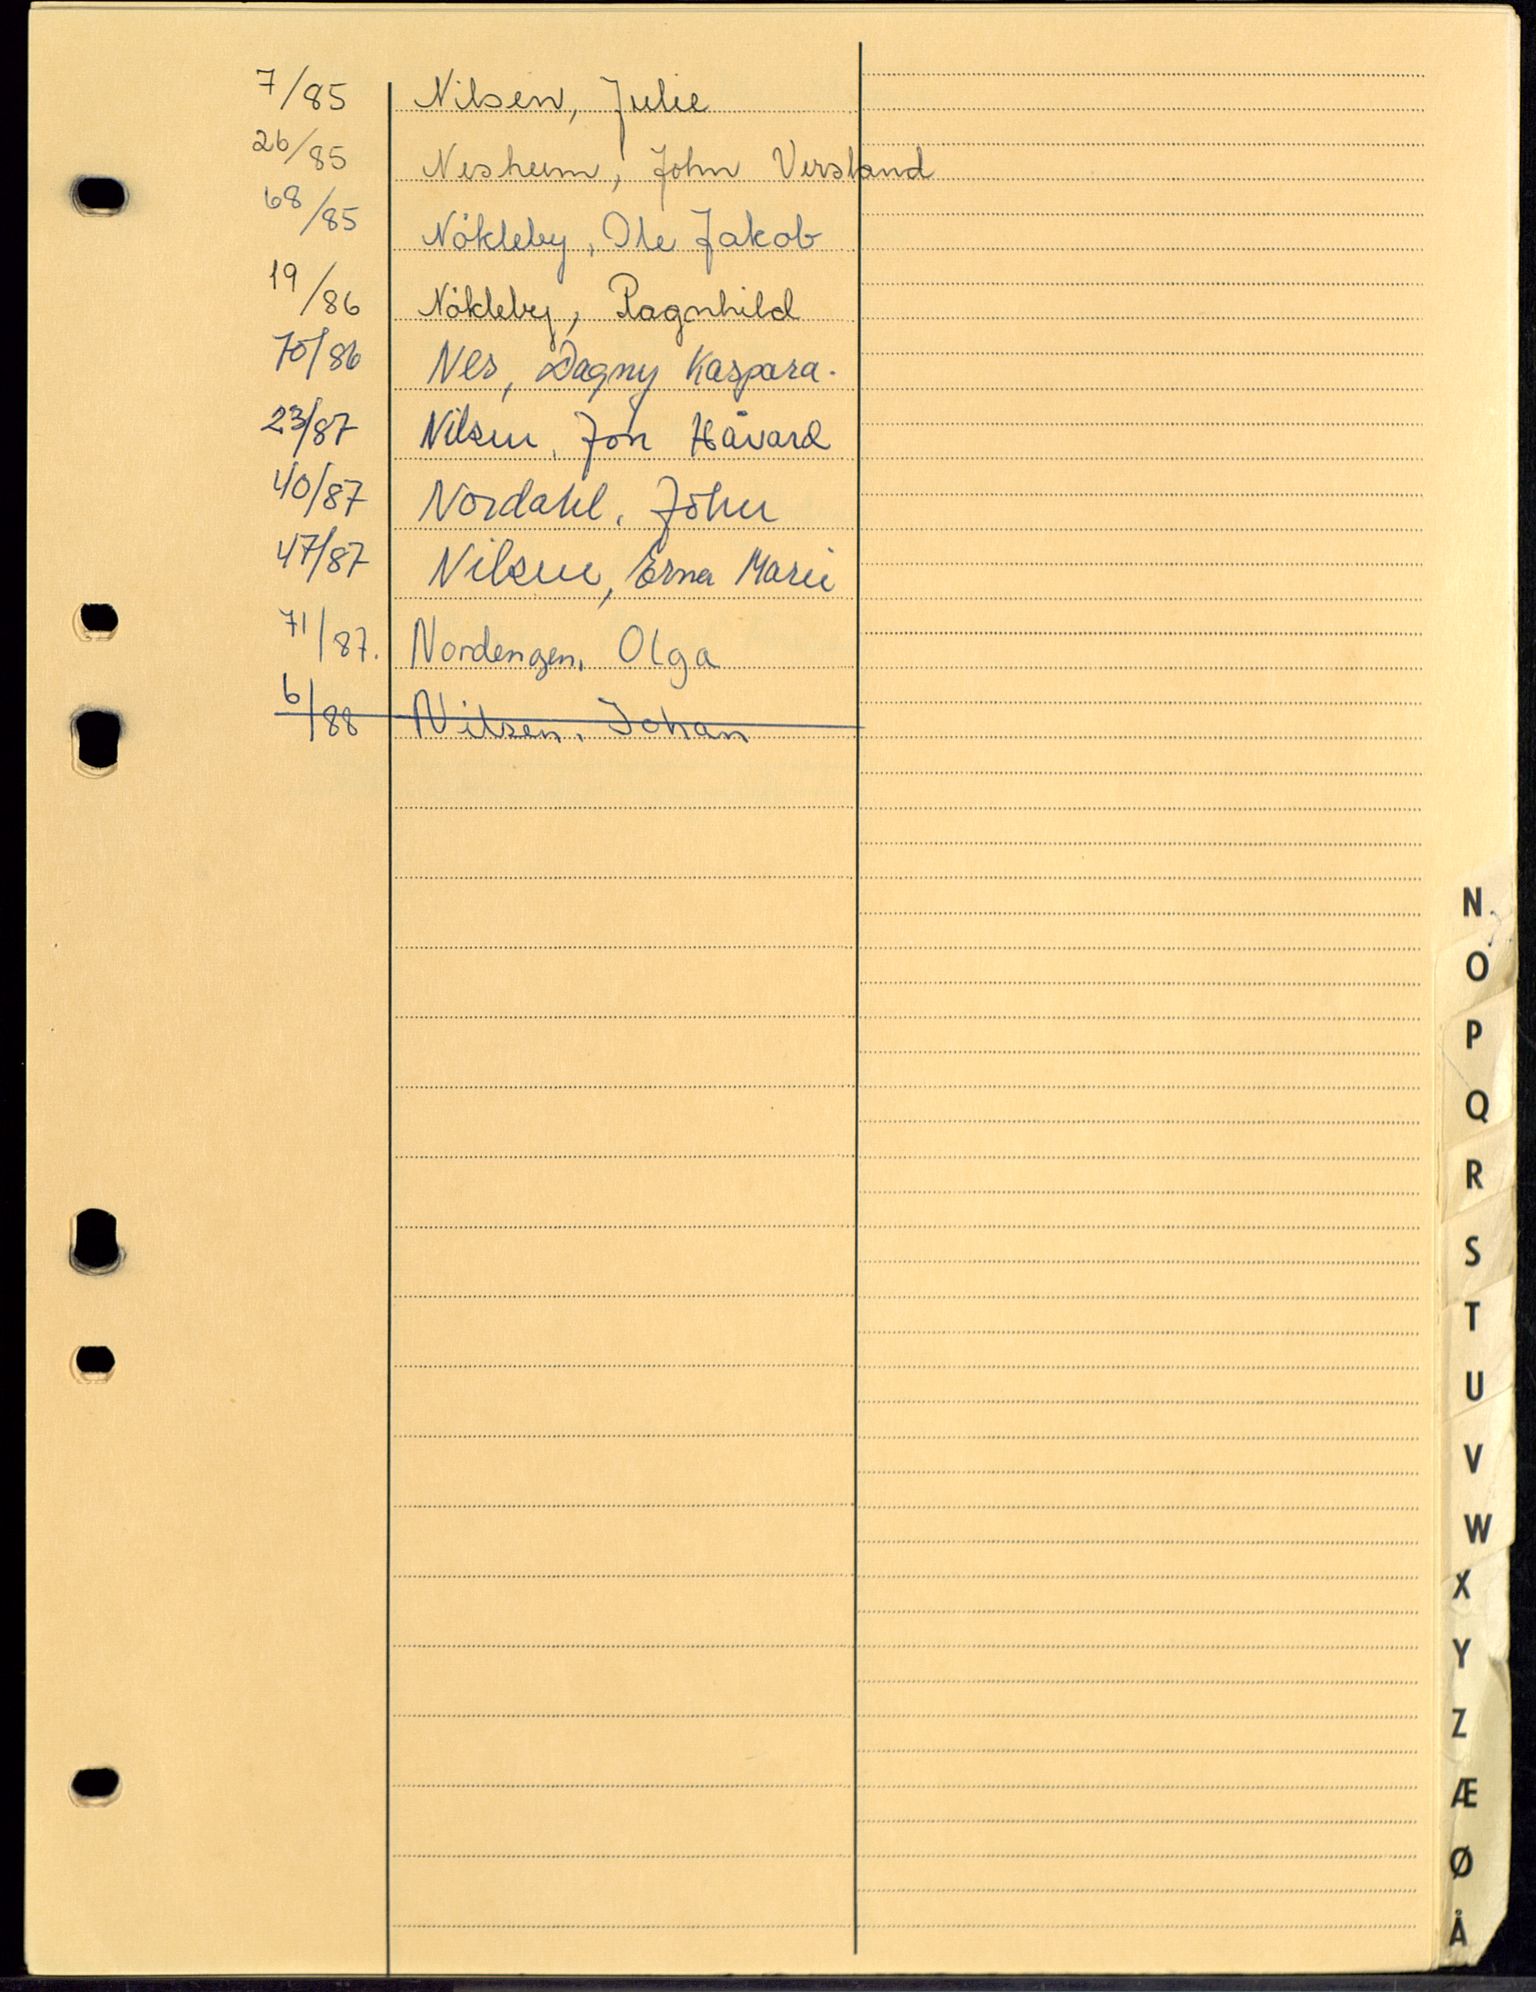 7/85 Nilsen, Julie
26/85 Nesheim, John Versland
68/85 Nökleby, Ole Jakob
19/86 Nökleby, Ragnhild
70/86 Nes, Dagny Kaspara.
23/87 Nilsen, Jon Håvard
40/87 Nordahl, John
47/87 Nilsen, Erna Marie
71/87. Nordengen, Olga
6/88 Nilsen, Johan
N
O
P
Q
R
S
T
U
V
W
X
Y
Z
Æ
Ø
Å